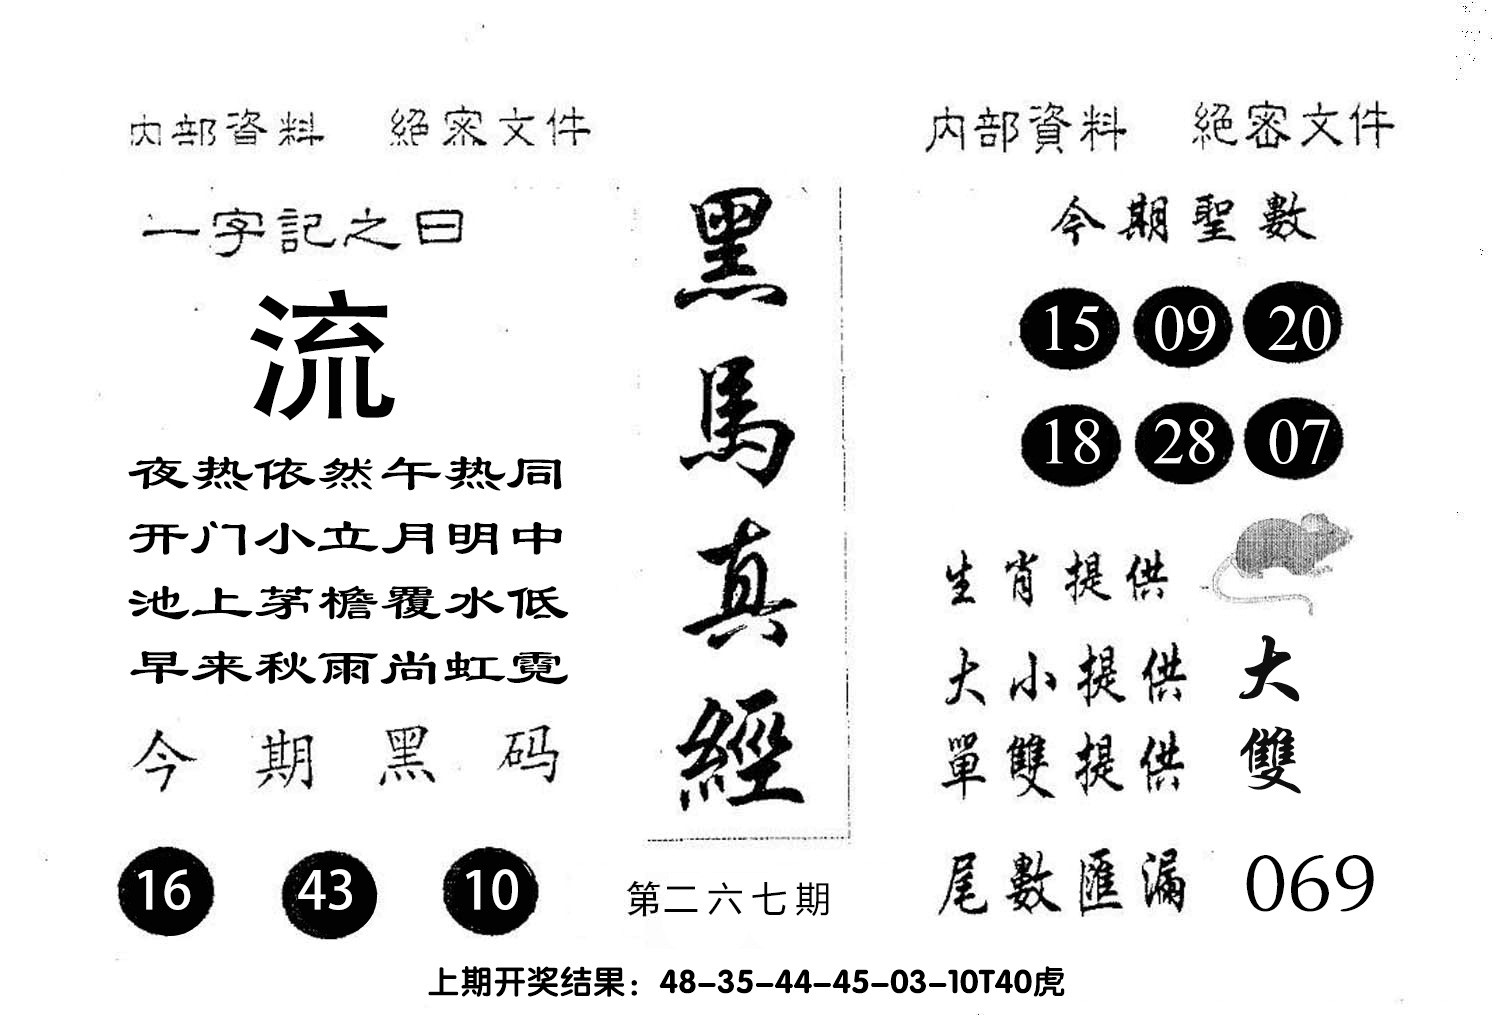 内部資料 絕密文件
一字記之曰
流
夜热依然午热同
开门小立月明中
池上茅檐覆水低
早来秋雨尚虹霓
今期黑码
16 43 10
黑馬真經
第二六七期
内部資料 絕密文件
今期聖數
15 09 20
18 28 07
生肖提供
大小提供 大
單雙提供 雙
尾數匯漏 069
上期开奖结果：48-35-44-45-03-10T40虎